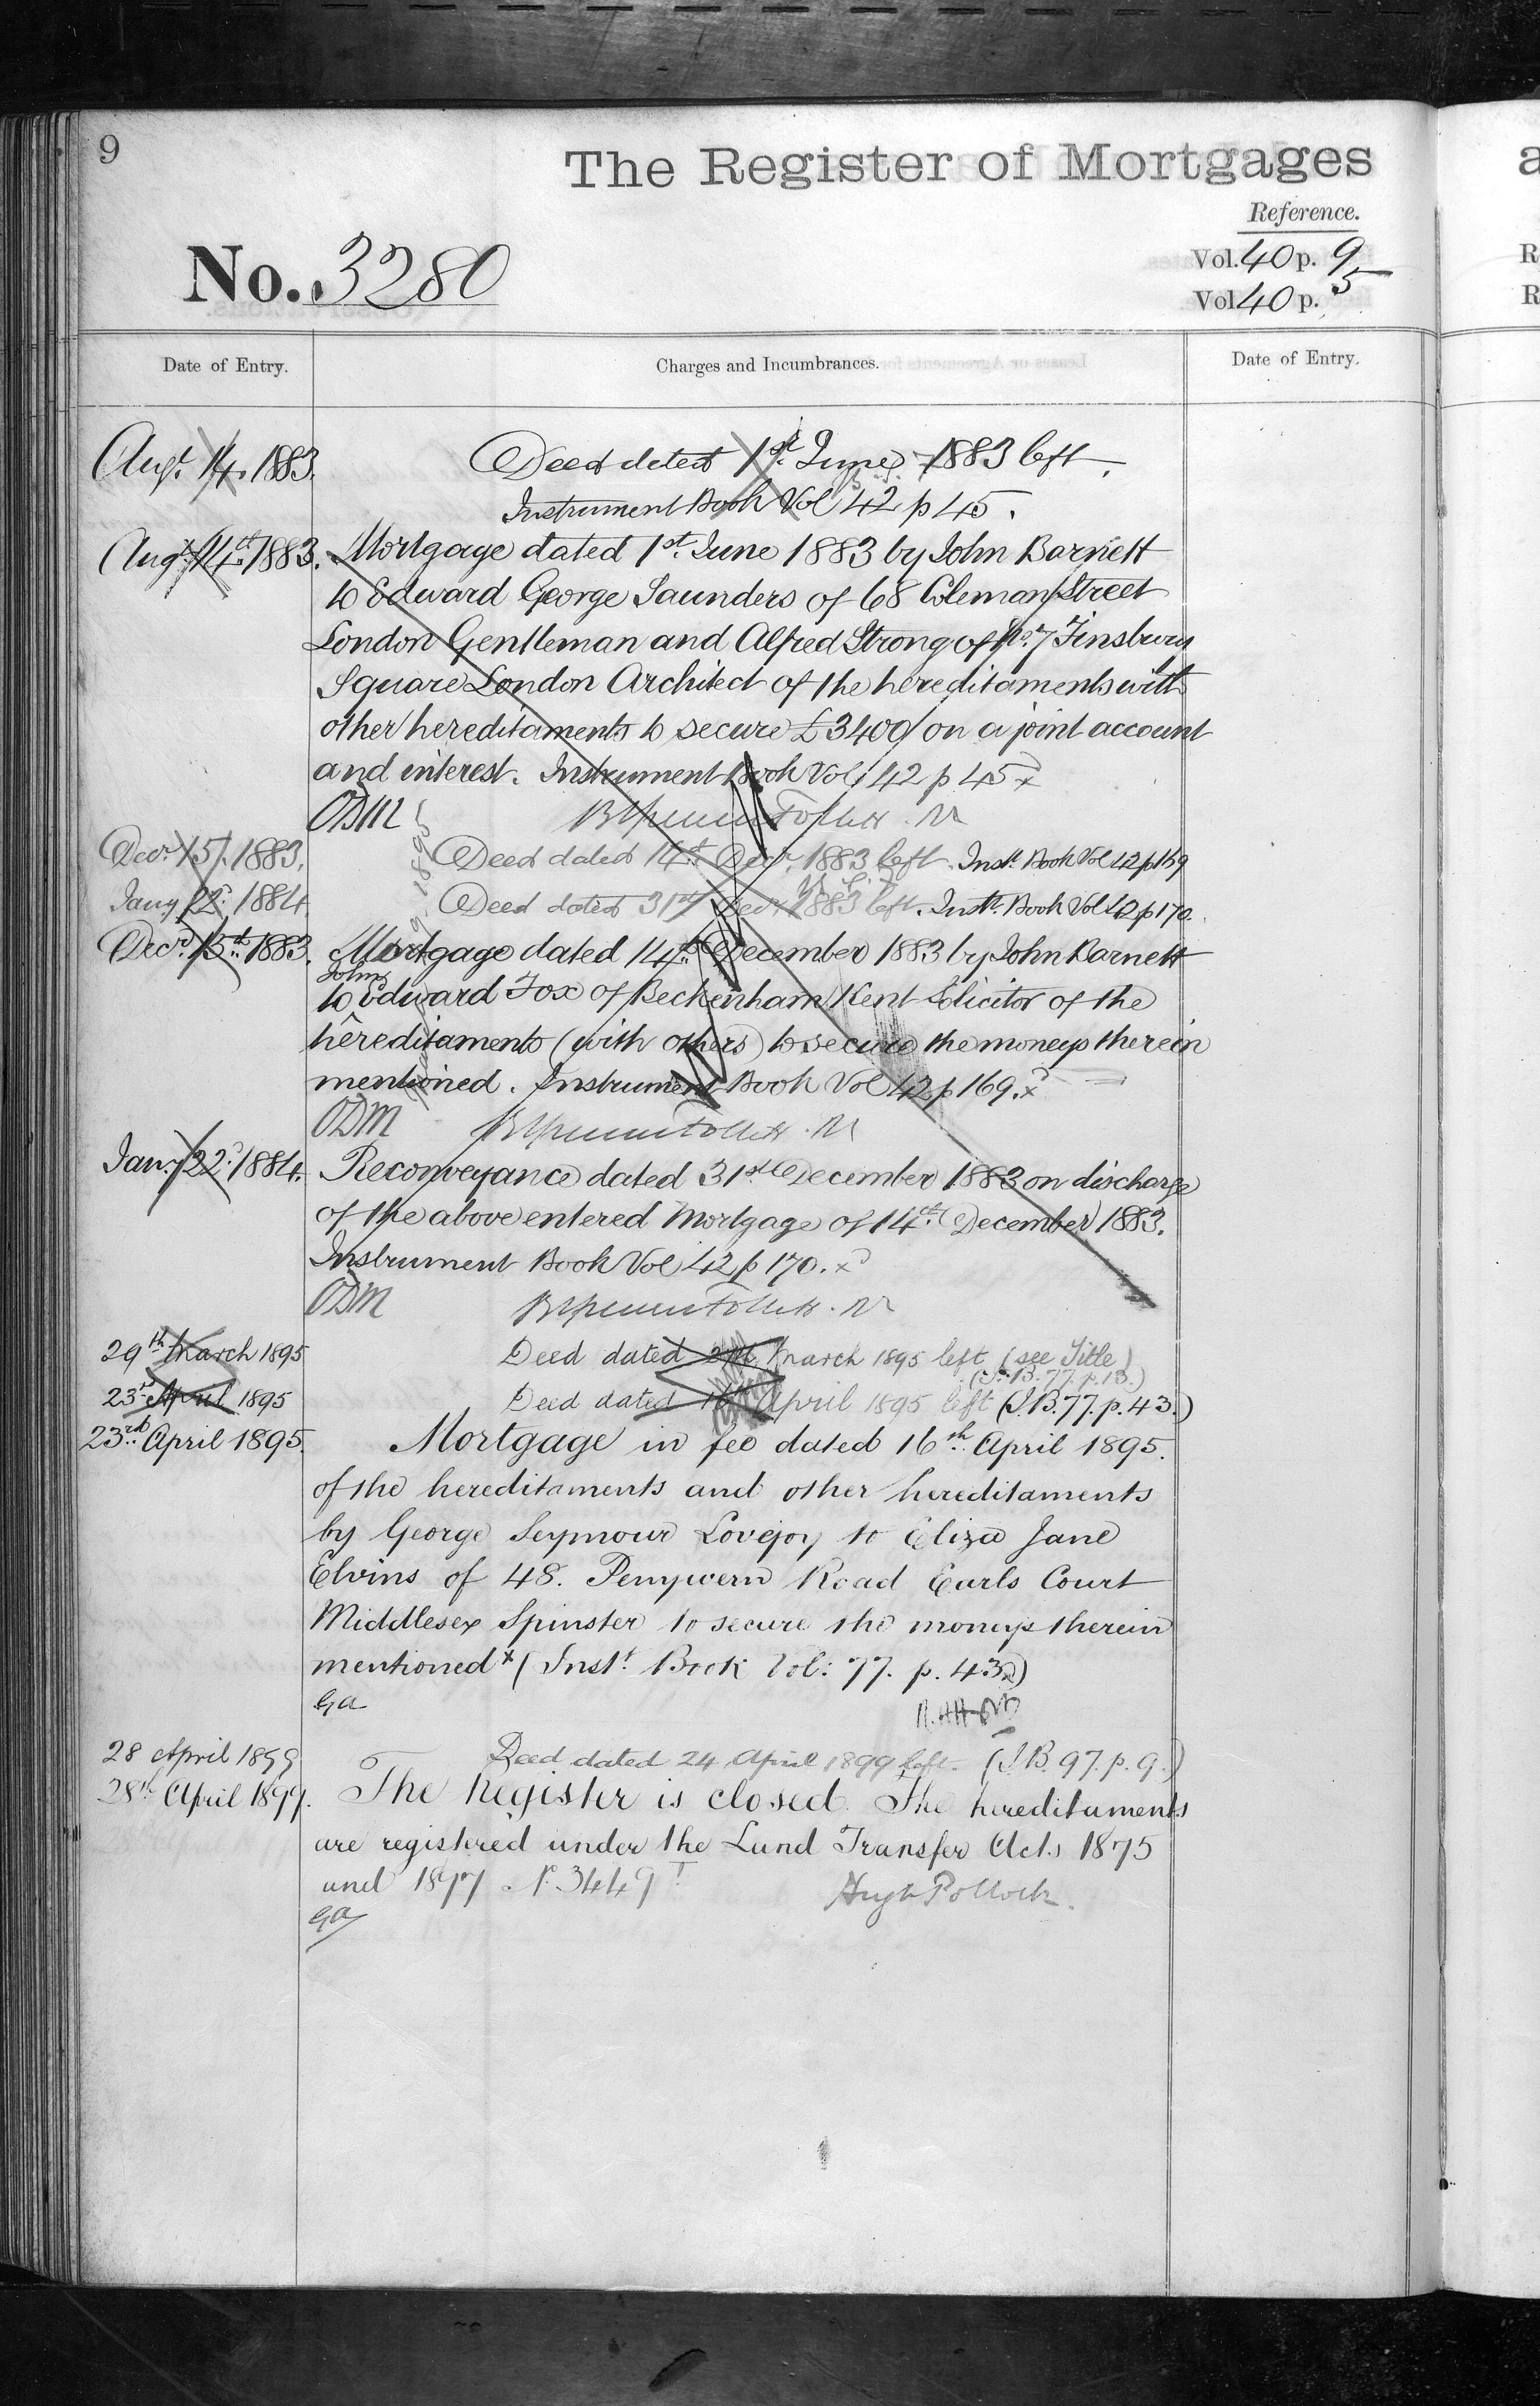 9
The Register of Mortgages
Reference.
No. 3280
Vol. 40 p. 9
Vol 40 p. 5
Date of Entry.
Charges and Incumbrances.
Date of Entry.
Augt. 14. 1883.
Deed dated 1st June 1883 left.
Instrument Book Vol 42 p 45.
Augt 14th 1883.
Mortgage dated 1st. June 1883 by John Barnett
to Edward George Saunders of 68 Coleman Street
London Gentleman and Alfred Strong of No. 7 Finsbury
Square London Architect of the hereditaments with
other hereditaments to secure £3400 on a joint account
and interest. Instrument Book Vol 42 p 45 x
ODM
Decr. 15. 1883.
Deed dated 14th Decr. 1883 left. Inst. Book Vol 42 p 169
Jany 22. 1884
Deed dated 31st Decr. 1883 left. Instt. Book Vol 42 p 170.
Decr. 15th. 1883.
Mortgage dated 14th December 1883 by John Barnett
John
to Edward Fox of Beckenham Kent Solicitor of the
hereditaments (with others) to secure the moneys therein
mentioned. Instrument Book Vol 42 p 169. x
ODM
Jany 22. 1884.
Reconveyance dated 31st December 1883 on discharge
of the above entered Mortgage of 14th. December 1883.
Instrument Book Vol 42 p 170. x
ODM
29th March 1895
Deed dated March 1895 left (see Title)
(I.B. 77. p. 13.)
23rd April 1895
Deed dated 16th April 1895 left (I.B. 77. p. 43.)
23rd. April 1895.
Mortgage in fee dated 16th. April 1895.
of the hereditaments and other hereditaments
by George Seymour Lovejoy to Eliza Jane
Elvins of 48. Penywern Road Earls Court
Middlesex Spinster to secure the moneys therein
mentioned x (Inst. Book Vol: 77. p. 43)
GA
28 April 1899
Deed dated 24 April 1899 left. (I.B. 97. p. 9.)
28th April 1899.
The Register is closed. The hereditaments
are registered under the Land Transfer Acts 1875
and 1897 No. 3449
Hugh Pollock.
GA
a
R
R